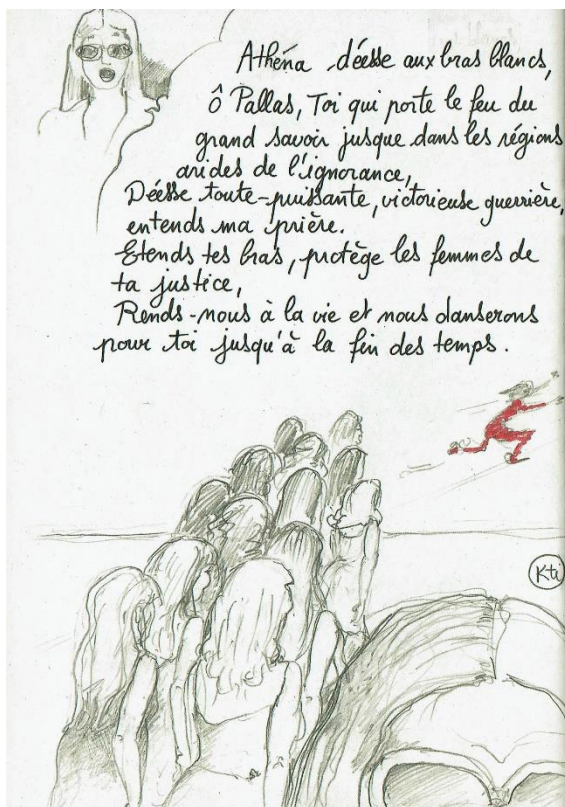 Athéna déesse aux bras blancs,
ô Pallas, Toi qui porte le feu du
grand savoir jusque dans les régions
arides de l'ignorance,
Déesse toute-puissante, victorieuse guerrière,
entends ma prière.
Etends tes bras, protège les femmes de
ta justice,
Rends-nous à la vie et nous danserons
pour toi jusqu'à la fin des temps.